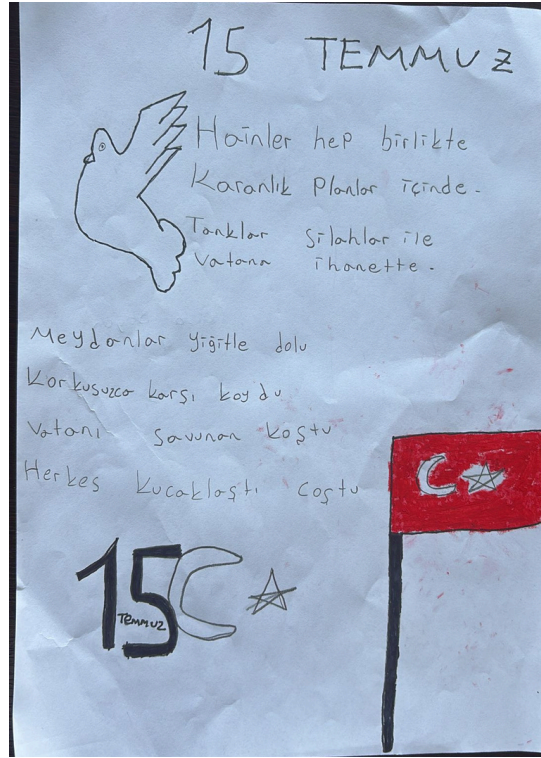 15 TEMMUZ
Hainler hep birlikte
Karanlık Planlar içinde.
Tanklar Silahlar ile
Vatana ihanette.
Meydanlar yiğitle dolu
Korkusuzca karşı koydu
Vatanı Savunan koştu
Herkes kucaklaştı coştu
15
TEMMUZ